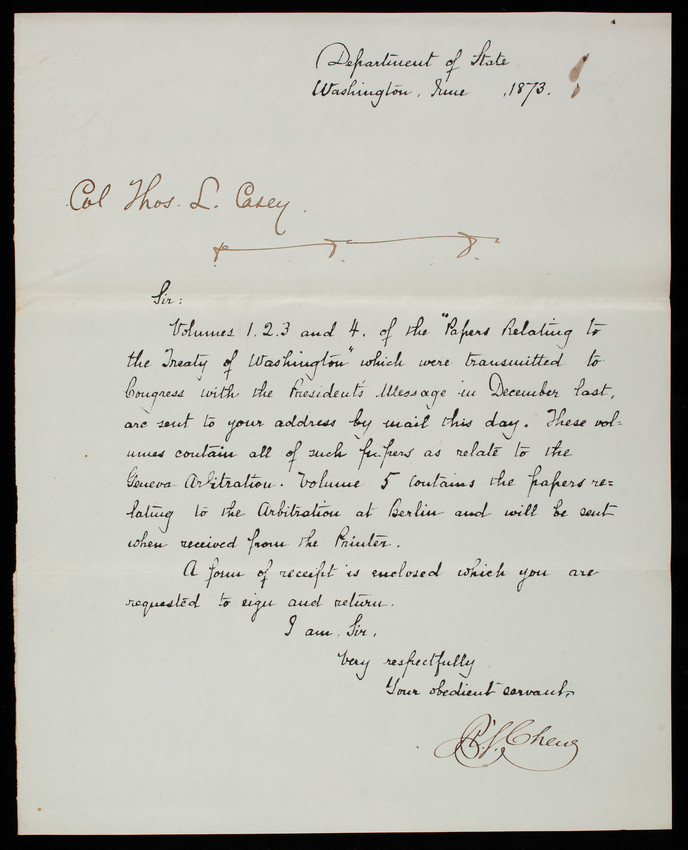 Department of State
Washington, June , 1873.
Col Thos. L. Casey.
Sir:
Volumes 1. 2. 3 and 4. of the "Papers Relating to
the Treaty of Washington" which were transmitted to
Congress with the President's Message in December last,
are sent to your address by mail this day. These vol=
umes contain all of such papers as relate to the
Geneva Arbitration. Volume 5 contains the papers re=
lating to the Arbitration at Berlin and will be sent
when received from the Printer.
A form of receipt is enclosed which you are
requested to sign and return.
I am, Sir,
Very respectfully
Your obedient servant,
R. S. Chew